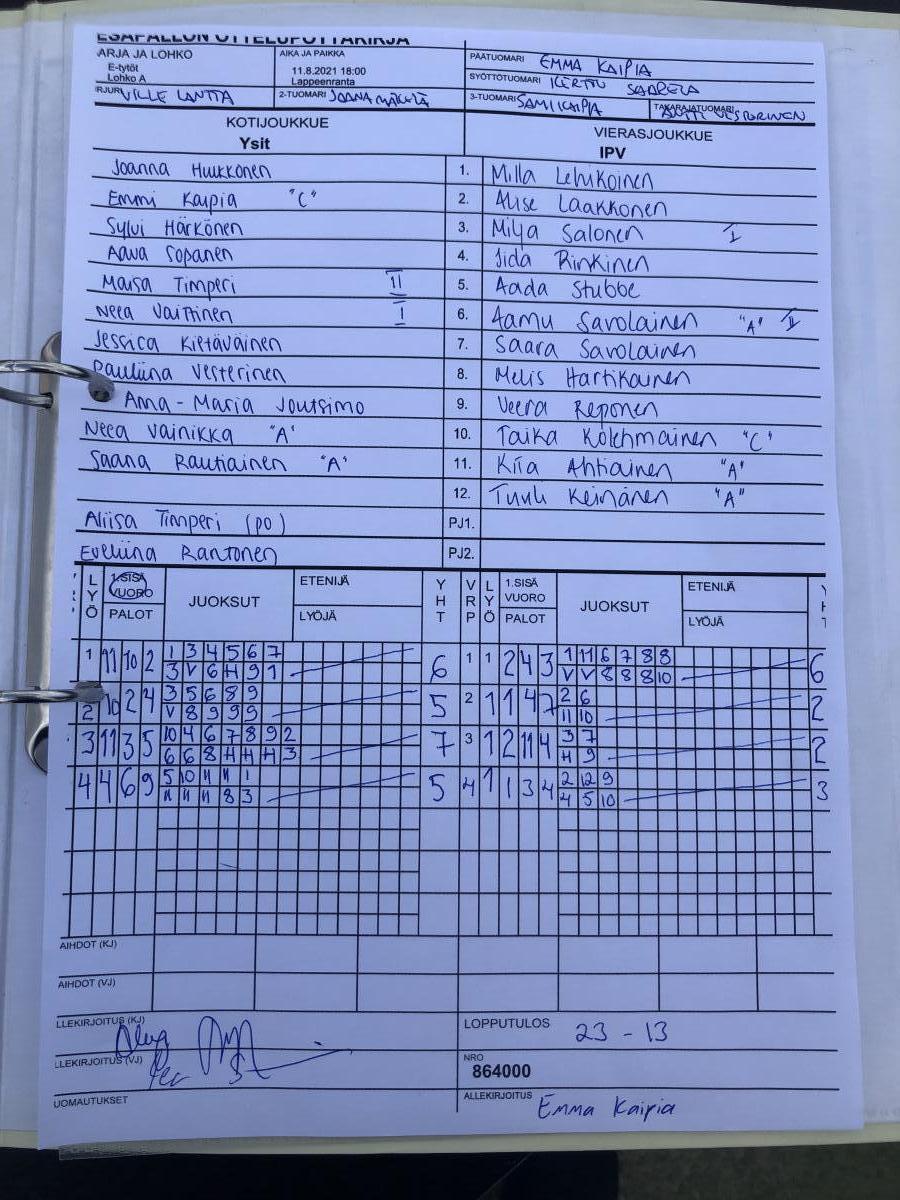 PESÄPALLON OTTELUPÖYTÄKIRJA
SARJA JA LOHKO
E-tytöt
Lohko A
AIKA JA PAIKKA
11.8.2021 18:00
Lappeenranta
PÄÄTUOMARI EMMA KAIPIA
SYÖTTÖTUOMARI KERTTU SAARELA
KIRJURI VILLE LANTTA
2-TUOMARI JOANA MÄKELÄ
3-TUOMARI SAMI KAIPIA
TAKARAJATUOMARI VESTERINEN
KOTIJOUKKUE
Ysit
VIERASJOUKKUE
IPV
Joanna Huukkonen 1. Milla Lehikoinen
Emmi Kaipia "C" 2. Alise Laakkonen
Sylvi Härkönen 3. Milja Salonen I
Aava Sopanen 4. Iida Rinkinen
Maisa Timperi II 5. Aada Stubbe
Neea Vaittinen I 6. Aamu Savolainen "A" II
Jessica Kietäväinen 7. Saara Savolainen
Pauliina Vesterinen 8. Melis Hartikainen
Anna-Maria Joutsimo 9. Veera Reponen
Neea Vainikka "A" 10. Taika Kolehmainen "C"
Saana Rautiainen "A" 11. Kiia Ahtiainen "A"
12. Tuuli Keinänen "A"
Aliisa Timperi (PO) PJ1.
Eveliina Rantonen PJ2.
LYÖ 1.SISÄVUORO PALOT JUOKSUT ETENIJÄ LYÖJÄ YHT VRP LYÖ 1.SISÄ VUORO PALOT JUOKSUT ETENIJÄ LYÖJÄ YHT
1 11 10 2 1 3 4 5 6 7 6 1 1 2 4 3 1 11 6 7 8 8 6
3 V 6 H 9 1 V V 8 8 8 10
2 10 2 4 3 5 6 8 9 5 2 1 1 4 7 2 6 2
V 8 9 9 9 11 10
3 11 3 5 10 4 6 7 8 9 2 7 3 1 2 11 4 3 7 2
6 6 8 H H H 3 H 9
4 4 6 9 5 10 11 11 1 5 4 1 1 3 4 2 12 9 3
11 11 11 8 3 4 5 10
VAIHDOT (KJ)
VAIHDOT (VJ)
ALLEKIRJOITUS (KJ)
LOPPUTULOS 23 - 13
ALLEKIRJOITUS (VJ)
NRO
864000
HUOMAUTUKSET
ALLEKIRJOITUS Emma Kaipia